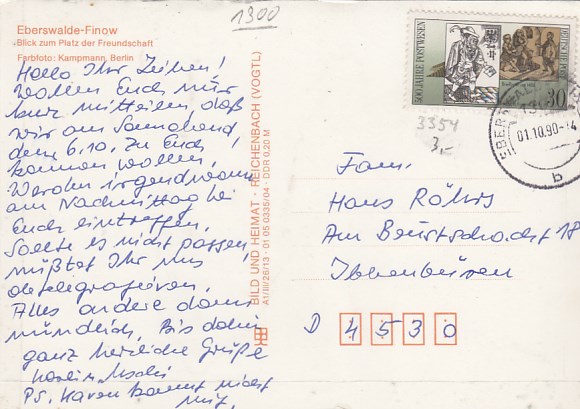 1300
Eberswalde-Finow
Blick zum Platz der Freundschaft
Farbfoto: Kampmann, Berlin
Hallo Ihr Lieben!
Wollen Euch nur
kurz mitteilen, daß
wir am Sonnabend
dem 6.10. zu Euch
kommen wollen.
Werden irgendwann
am Nachmittag bei
Euch eintreffen.
Sollte es nicht passen,
müßtet Ihr uns
abtelegrafieren.
Alles andere dann
mündlich. Bis dahin
ganz herzliche Grüße
PS. Karen kommt nicht
mit.
BILD UND HEIMAT · REICHENBACH (VOGTL)
A1/III/26/13 · 01 05 0335/04 · DDR 0,20 M
500 JAHRE POSTWESEN
DEUTSCHE POST
30
01.10.90
b
3354
3,-
Fam.
Hans Röhrs
Am 18
Ibbenbüren
D 4530